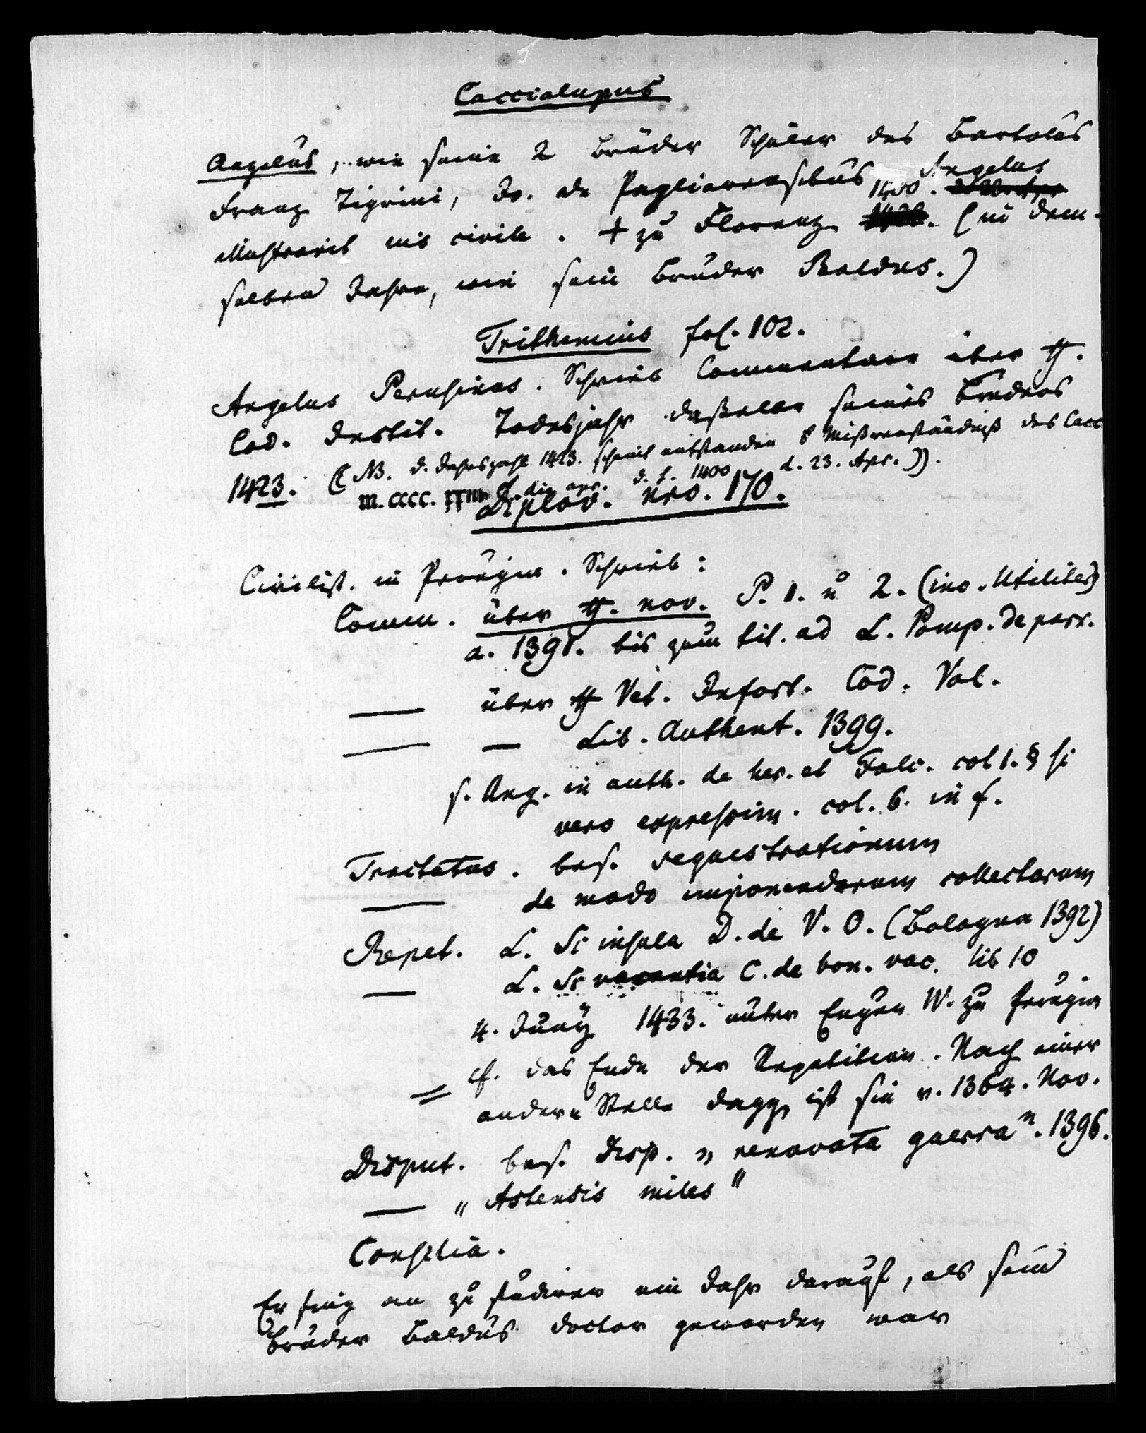 Caccialupus
Angelus, wie seine 2 Brüder Schüler des Bartolus
Franz Tigrini, Jo. de Pagliarensibus. Angelus
1400.
illustravit ius civile. † zu Florenz (in dem-
selben Jahre, wie sein Bruder Baldus.)
Trithemius fol. 102.
Angelus Perusinus. Schrieb Commentare über ff.
Cod. Instit. Todesjahr dasselbe seines Bruders
1423. (NB. d. Jahrszahl 1423. scheint entstanden Mißverständniß des Cacc
m. cccc. d. 1400 d. 23. Apr.)).
Diplov. Nro. 170.
Civilist. in Perugia. Schrieb:
Comm. über ff. nov. P. 1. u 2. (inc. Utilites)
a. 1391. bis zum tit. ad L. Pomp. de parr.
— über ff Vet. Infort. Cod. Vol.
— — Lib. Authent. 1399.
s. Ang. in auth. de her. et Falc. col 1. § si
vero expressim. col. 6. in f.
Tractatus. bes. sequestrationum
— de modo imponendarum collectarum
Repet. L. Si insula D. de V. O. (Bologna 1392)
— L. Si vacantia C. de bon. vac. lib 10
4. Juny 1433. unter Eugen IV. zu Perugia
= cf. das Ende der Repetition. Nach einer
andern Stelle dagg. ist sie v. 1364. Nov.
Disput. bes. Disp. „renovata guerra". 1396.
— „Astensis miles"
Consilia.
Er fing an zu studiren ein Jahr darauf, als sein
Bruder Baldus doctor geworden war